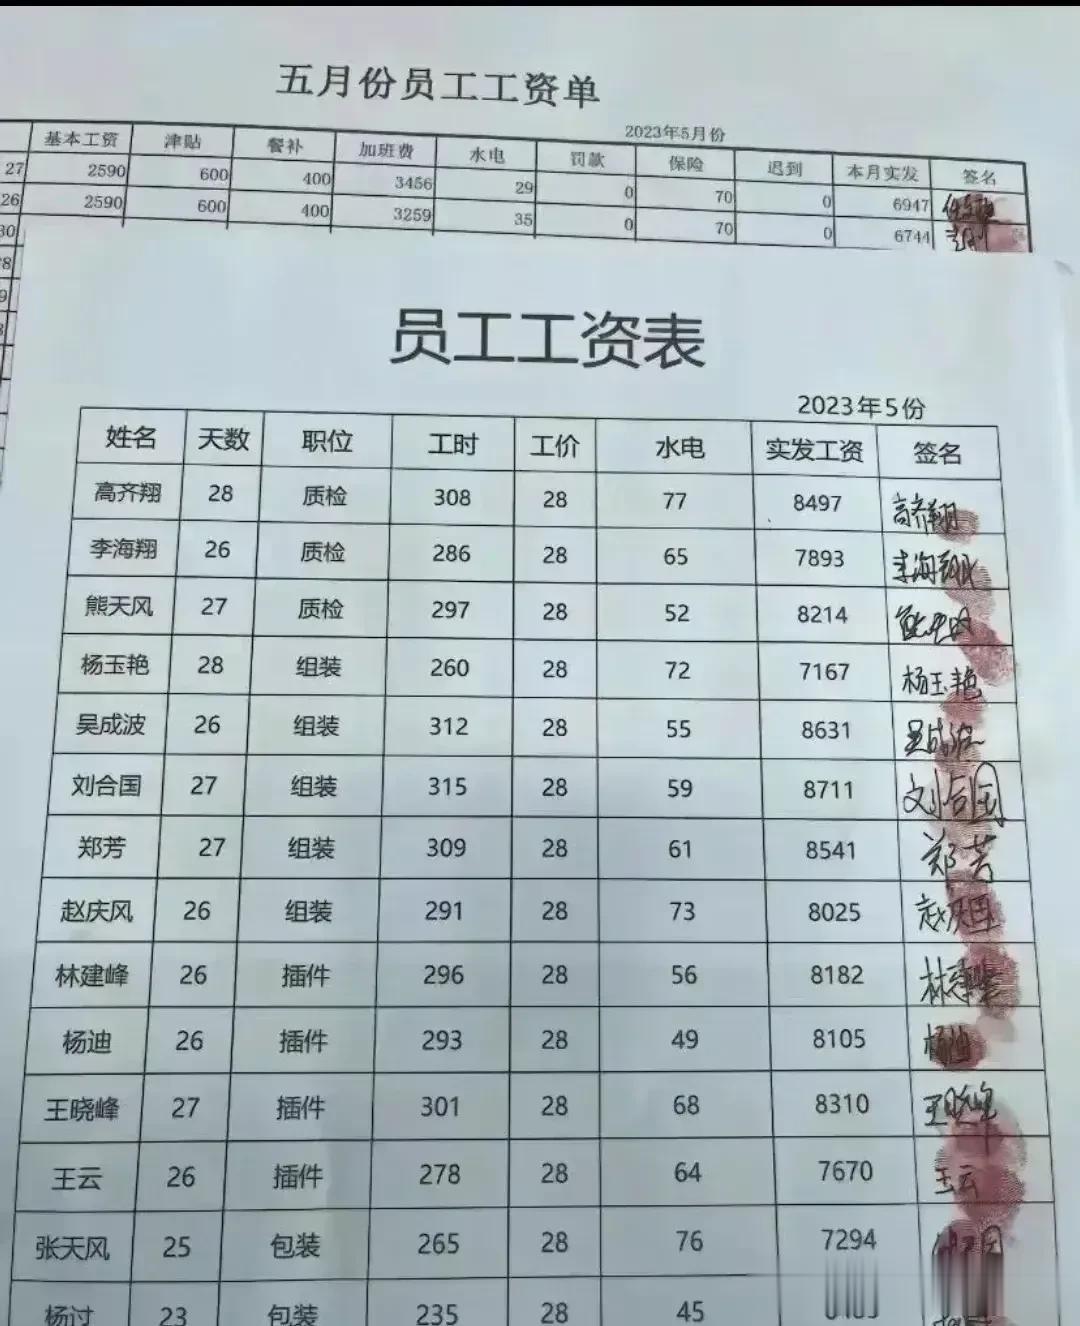 五月份员工工资单
2023年5月份
基本工资 津贴 餐补 加班费 水电 罚款 保险 迟到 本月实发 签名
27 2590 600 400 3456 29 0 70 0 6947
26 2590 600 400 3259 35 0 70 0 6744
30
员工工资表
2023年5份
姓名 天数 职位 工时 工价 水电 实发工资 签名
高齐翔 28 质检 308 28 77 8497 高齐翔
李海翔 26 质检 286 28 65 7893 李海翔
熊天风 27 质检 297 28 52 8214
杨玉艳 28 组装 260 28 72 7167 杨玉艳
吴成波 26 组装 312 28 55 8631 吴成波
刘合国 27 组装 315 28 59 8711 刘合国
郑芳 27 组装 309 28 61 8541 郑芳
赵庆风 26 组装 291 28 73 8025
林建峰 26 插件 296 28 56 8182 林建峰
杨迪 26 插件 293 28 49 8105 杨迪
王晓峰 27 插件 301 28 68 8310 王晓峰
王云 26 插件 278 28 64 7670 王云
张天风 25 包装 265 28 76 7294
杨过 23 包装 235 28 45